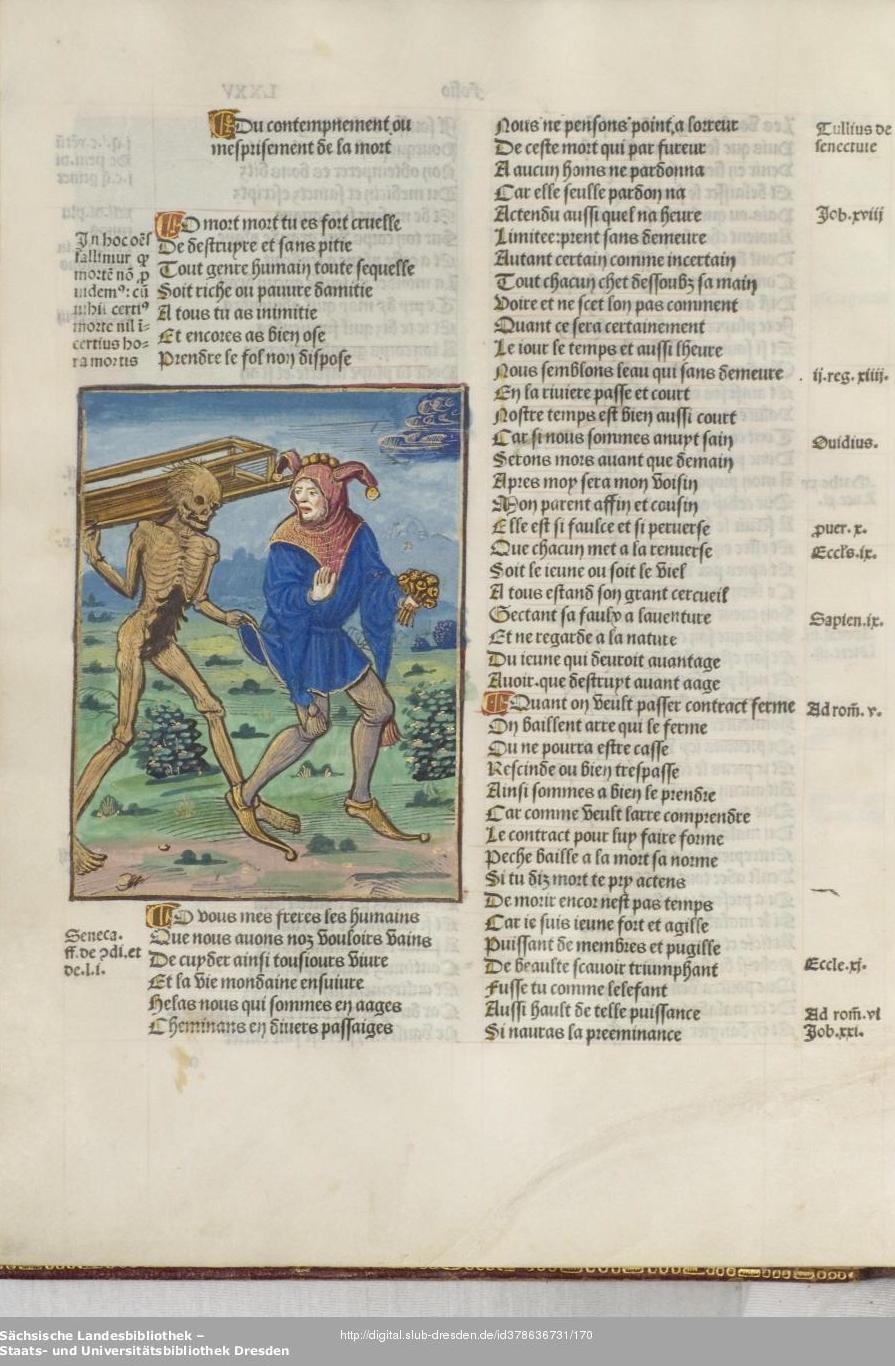 Du contempnement ou
mesprisement de la mort
O mort mort tu es fort cruelle
De destruyre et sans pitie
Tout genre humain toute sequelle
Soit riche ou pauure damitie
A tous tu as inimitie
Et encores as bien ose
Prendre le fol non dispose
In hoc oēs
fallimur qꝫ
mortē nō ꝓ
uidemꝰ: cū
nihil certiꝰ
morte nil ī-
certius ho-
ra mortis
O vous mes freres les humains
Que nous auons noz vouloirs vains
De cuyder ainsi tousiours viure
Et la vie mondaine ensuiure
Helas nous qui sommes en aages
Cheminans en diuers passaiges
Seneca.
ff. de ↄdi. et
de. l. i.
Nous ne pensons point a lorreur
De ceste mort qui par fureur
A aucun homs ne pardonna
Car elle seulle pardon na
Actendu aussi quel na heure
Limitee: prent sans demeure
Autant certain comme incertain
Tout chacun chet dessoubz sa main
Voire et ne scet lon pas comment
Quant ce sera certainement
Le iour le temps et aussi lheure
Nous semblons leau qui sans demeure
En la riuiere passe et court
Nostre temps est bien aussi court
Car si nous sommes anuyt sain
Serons mors auant que demain
Apres moy sera mon voisin
Mon parent affin et cousin
Elle est si faulce et si peruerse
Que chacun met a la renuerse
Soit le ieune ou soit le viel
A tous estand son grant cercueil
Gectant sa faulx a lauenture
Et ne regarde a la nature
Du ieune qui deuroit auantage
Auoir. que destruyt auant aage
Quant on veult passer contract ferme
On baillent arre qui le ferme
Ou ne pourra estre casse
Rescinde ou bien trespasse
Ainsi sommes a bien le prendre
Car comme veult larre comprendre
Le contract pour luy faire forme
Peche baille a la mort sa norme
Si tu diz mort te pry actens
De morir encor nest pas temps
Car ie suis ieune fort et agille
Puissant de membres et pugille
De beaulte scauoir triumphant
Fusse tu comme lelefant
Aussi hault de telle puissance
Si nauras la preeminance
Tullius de
senectute
Job. xviij
ij. reg. xiiij.
Ouidius.
ꝓuer. x.
Eccls. ix.
Sapien. ix.
Ad rom̄. v.
Eccle. xj.
Ad rom̄. vi
Job. xxi.
Sächsische Landesbibliothek –
Staats- und Universitätsbibliothek Dresden
http://digital.slub-dresden.de/id378636731/170